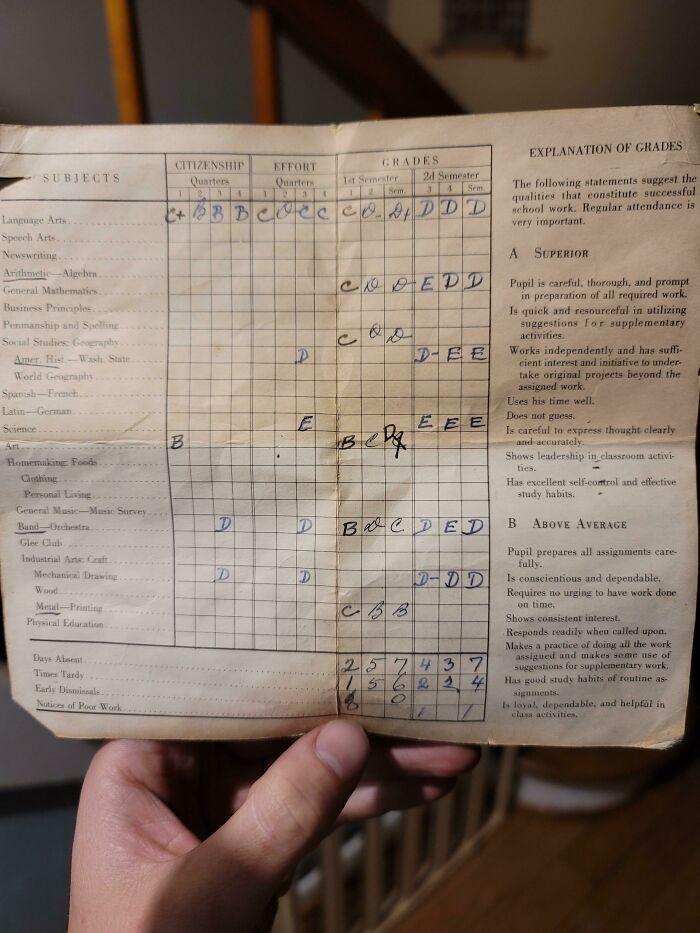 SUBJECTS CITIZENSHIP EFFORT GRADES
Quarters Quarters 1st Semester 2d Semester
1 2 3 4 1 2 3 4 1 2 Sem. 3 4 Sem.
Language Arts C+ B B B C D C C C D- D+ D D D
Speech Arts
Newswriting
Arithmetic—Algebra
General Mathematics C D D- E D D
Business Principles
Penmanship and Spelling
Social Studies: Geography C D D
Amer. Hist—Wash. State D D- E E
World Geography
Spanish—French
Latin—German
Science E E E E
Art B B C
Homemaking: Foods
Clothing
Personal Living
General Music—Music Survey
Band—Orchestra D D B D C D E D
Glee Club
Industrial Arts: Craft
Mechanical Drawing D D D- D D
Wood
Metal—Printing C B B
Physical Education
Days Absent 2 5 7 4 3 7
Times Tardy 1 5 6 2 2 4
Early Dismissals 0
Notices of Poor Work 1 1
EXPLANATION OF GRADES
The following statements suggest the
qualities that constitute successful
school work. Regular attendance is
very important.
A SUPERIOR
Pupil is careful, thorough, and prompt
in preparation of all required work.
Is quick and resourceful in utilizing
suggestions for supplementary
activities.
Works independently and has suffi-
cient interest and initiative to under-
take original projects beyond the
assigned work.
Uses his time well.
Does not guess.
Is careful to express thought clearly
and accurately.
Shows leadership in classroom activi-
ties.
Has excellent self-control and effective
study habits.
B ABOVE AVERAGE
Pupil prepares all assignments care-
fully.
Is conscientious and dependable.
Requires no urging to have work done
on time.
Shows consistent interest.
Responds readily when called upon.
Makes a practice of doing all the work
assigned and makes some use of
suggestions for supplementary work.
Has good study habits of routine as-
signments.
Is loyal, dependable, and helpful in
class activities.